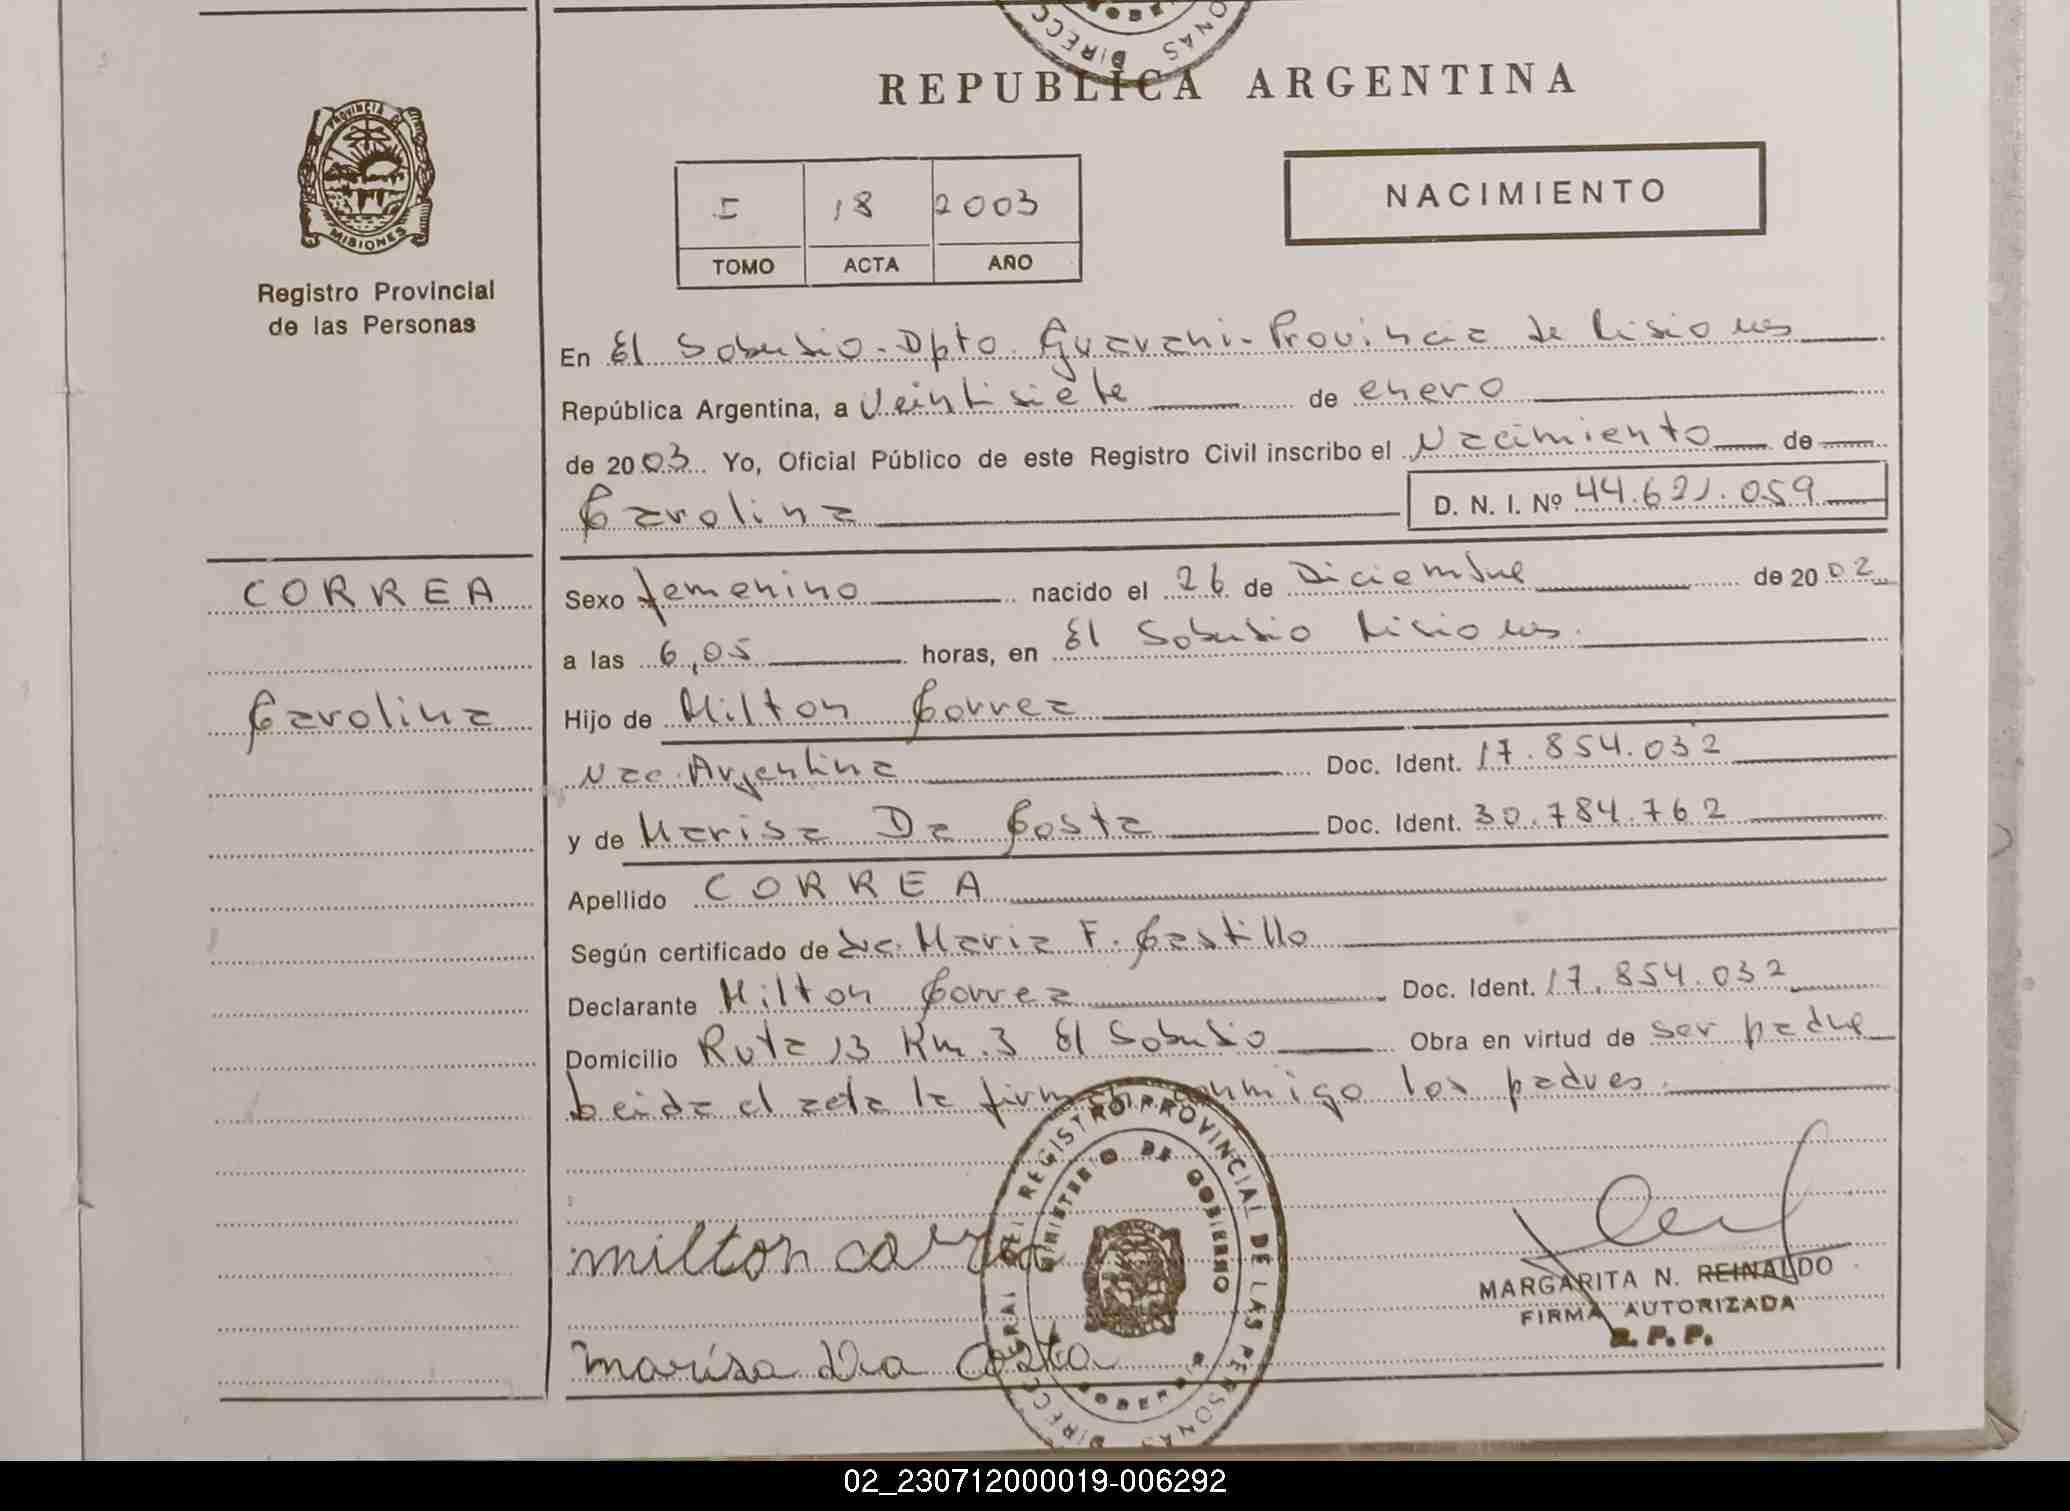 REPUBLICA ARGENTINA
PROVINCIA DE
MISIONES
Registro Provincial
de las Personas
I 18 2003
TOMO ACTA AÑO
NACIMIENTO
En El Soberbio - Dpto. Guarani - Provincia de Misiones
República Argentina, a Veintisiete de enero
de 2003 Yo, Oficial Público de este Registro Civil inscribo el Nacimiento de
Carolina D. N. I. Nº 44.621.059
CORREA
Sexo femenino nacido el 26 de Diciembre de 2002
a las 6,05 horas, en El Soberbio Misiones.
Carolina
Hijo de Milton Correa
Nac. Argentina Doc. Ident. 17.854.032
y de Marisa Da Costa Doc. Ident. 30.784.762
Apellido CORREA
Según certificado de Dra. Maria F. Castillo
Declarante Milton Correa Doc. Ident. 17.854.032
Domicilio Ruta 13 Km. 3 El Soberbio Obra en virtud de ser padre
Leida el acta la firman conmigo los padres.
REGISTRO PROVINCIAL DE LAS PERSONAS
MINISTERIO DE GOBIERNO
milton correa
MARGARITA N. REINALDO
FIRMA AUTORIZADA
R. P. P.
marisa Da Costa
02_230712000019-006292